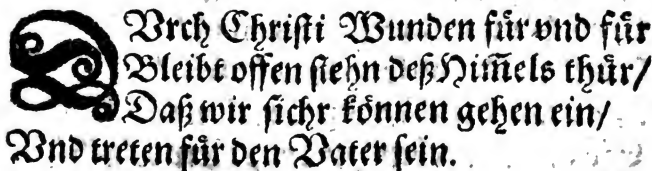 DVrch Christi Wunden für vnd für
Bleibt offen stehn deß Him̃els thür/
Daß wir sichr können gehen ein/
Vnd treten für den Vater sein.